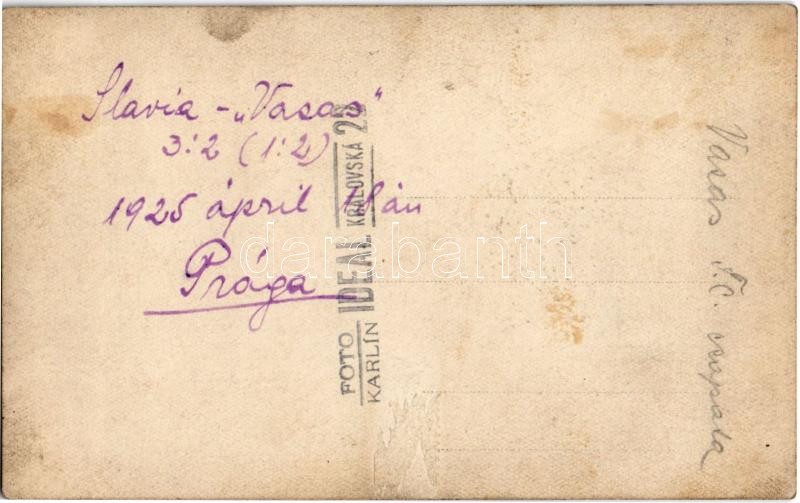 Slavia - „Vasas”
3:2 (1:2)
1925 ápril án
Prága
FOTO IDEAL KRÁLOVSKÁ
KARLÍN
Vasas F.C. csapata
darabanth